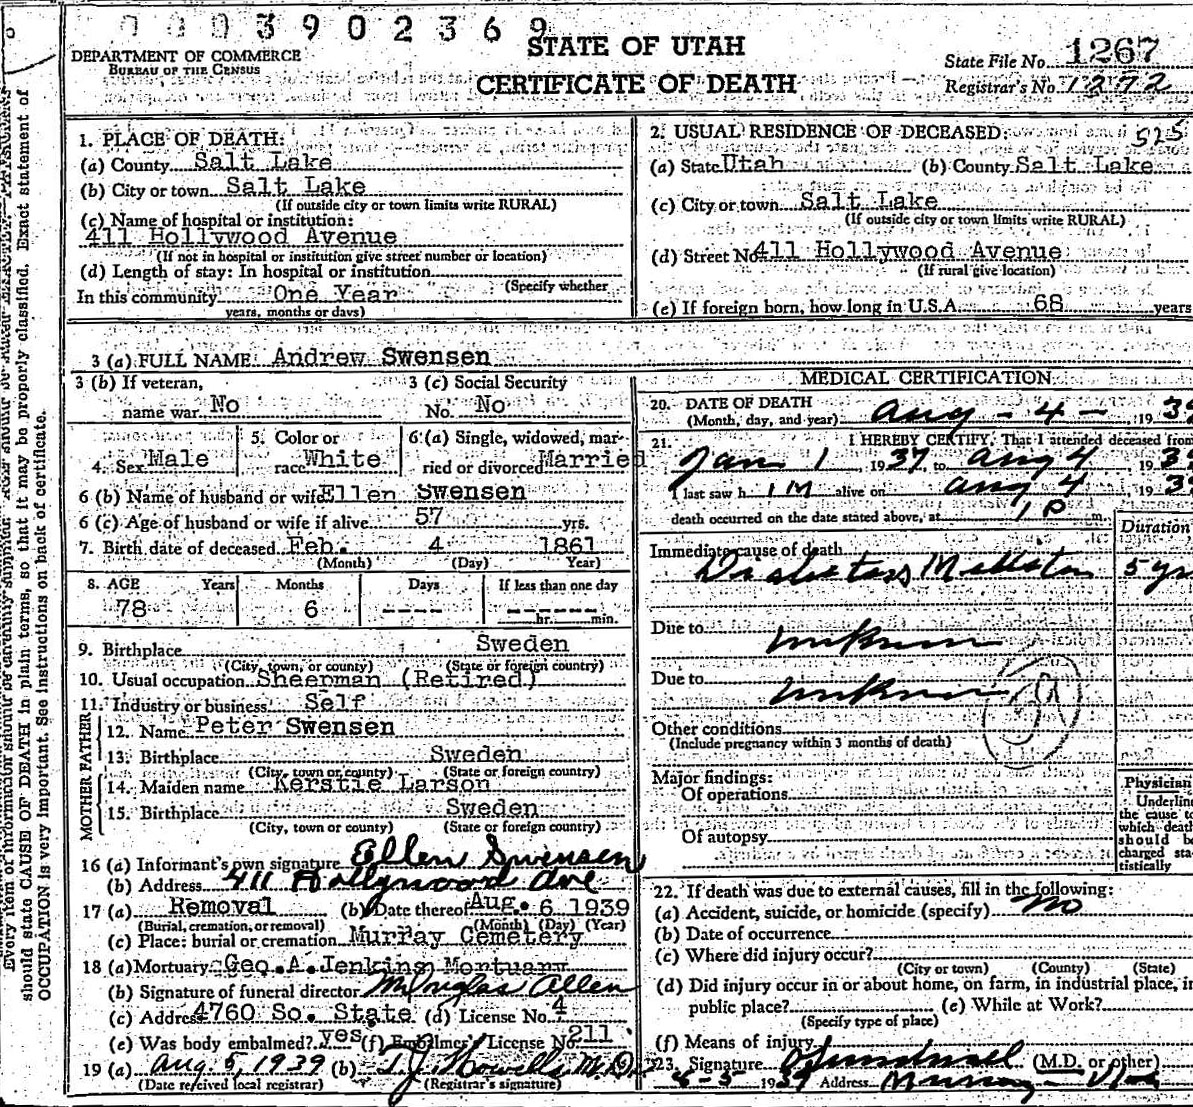 0003902369
DEPARTMENT OF COMMERCE
BUREAU OF THE CENSUS
STATE OF UTAH
CERTIFICATE OF DEATH
State File No. 1267
Registrar's No. 1272
1. PLACE OF DEATH:
(a) County Salt Lake
(b) City or town Salt Lake
(If outside city or town limits write RURAL)
(c) Name of hospital or institution:
411 Hollywood Avenue
(If not in hospital or institution give street number or location)
(d) Length of stay: In hospital or institution
(Specify whether
In this community One Year
years, months or days)
2. USUAL RESIDENCE OF DECEASED: 525
(a) State Utah (b) County Salt Lake
(c) City or town Salt Lake
(If outside city or town limits write RURAL)
(d) Street No 411 Hollywood Avenue
(If rural give location)
(e) If foreign born, how long in U.S.A. 68 years
3 (a) FULL NAME: Andrew Swensen
3 (b) If veteran, 3 (c) Social Security
name war No No. No
4. Sex Male 5. Color or race White 6 (a) Single, widowed, married or divorced Married
6 (b) Name of husband or wife Ellen Swensen
6 (c) Age of husband or wife if alive 57 yrs.
7. Birth date of deceased Feb. 4 1861
(Month) (Day) Year)
8. AGE Years Months Days If less than one day
78 6 ---- ------
hr. min.
9. Birthplace Sweden
(City, town, or county) (State or foreign country)
10. Usual occupation Sheepman (Retired)
11. Industry or business Self
FATHER
12. Name Peter Swensen
13. Birthplace Sweden
(City, town or county) (State or foreign country)
MOTHER
14. Maiden name Kerstie Larson
15. Birthplace Sweden
(City, town or county) (State or foreign country)
16 (a) Informant's own signature Ellen Swensen
(b) Address 411 Hollywood Ave
17 (a) Removal (b) Date thereof Aug. 6 1939
(Burial, cremation, or removal) (Month) (Day) (Year)
(c) Place: burial or cremation Murray Cemetery
18 (a) Mortuary Geo. A. Jenkins Mortuary
(b) Signature of funeral director M Douglas Allen
(c) Address 4760 So. State (d) License No. 4
(e) Was body embalmed? yes (f) Embalmer's License No. 211
19 (a) Aug 5, 1939 (b) T. J. Howells M.D.
(Date received local registrar) (Registrar's signature)
MEDICAL CERTIFICATION
20. DATE OF DEATH
(Month, day, and year) Aug - 4 - 1939
21. I HEREBY CERTIFY, That I attended deceased from
Jan 1, 1937, to Aug 4, 1939
I last saw h im alive on Aug 4, 1939
death occurred on the date stated above, at 1 P m.
Duration
Immediate cause of death
Diabetes Mellitus 5 yr
Due to unknown
Due to unknown
Other conditions
(Include pregnancy within 3 months of death)
Major findings:
Of operations
Of autopsy
Physician
Underlin
the cause to
which death
should be
charged sta
tistically
22. If death was due to external causes, fill in the following:
(a) Accident, suicide, or homicide (specify) no
(b) Date of occurrence
(c) Where did injury occur?
(City or town) (County) (State)
(d) Did injury occur in or about home, on farm, in industrial place, in
public place? (e) While at Work?
(Specify type of place)
(f) Means of injury
23. Signature (M.D. or other)
8-5-1939 Address Murray - Utah
should state CAUSE OF DEATH in plain terms, so that it may be properly classified. Exact statement of
OCCUPATION is very important. See instructions on back of certificate.